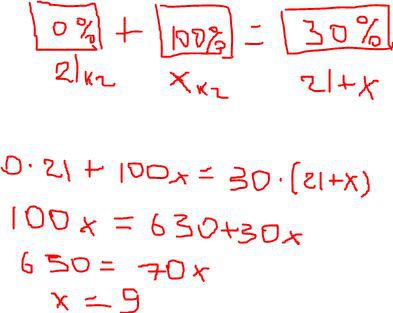 0% + 100% = 30%
21кг xкг 21+x
0·21 + 100x = 30·(21+x)
100x = 630+30x
630 = 70x
x = 9